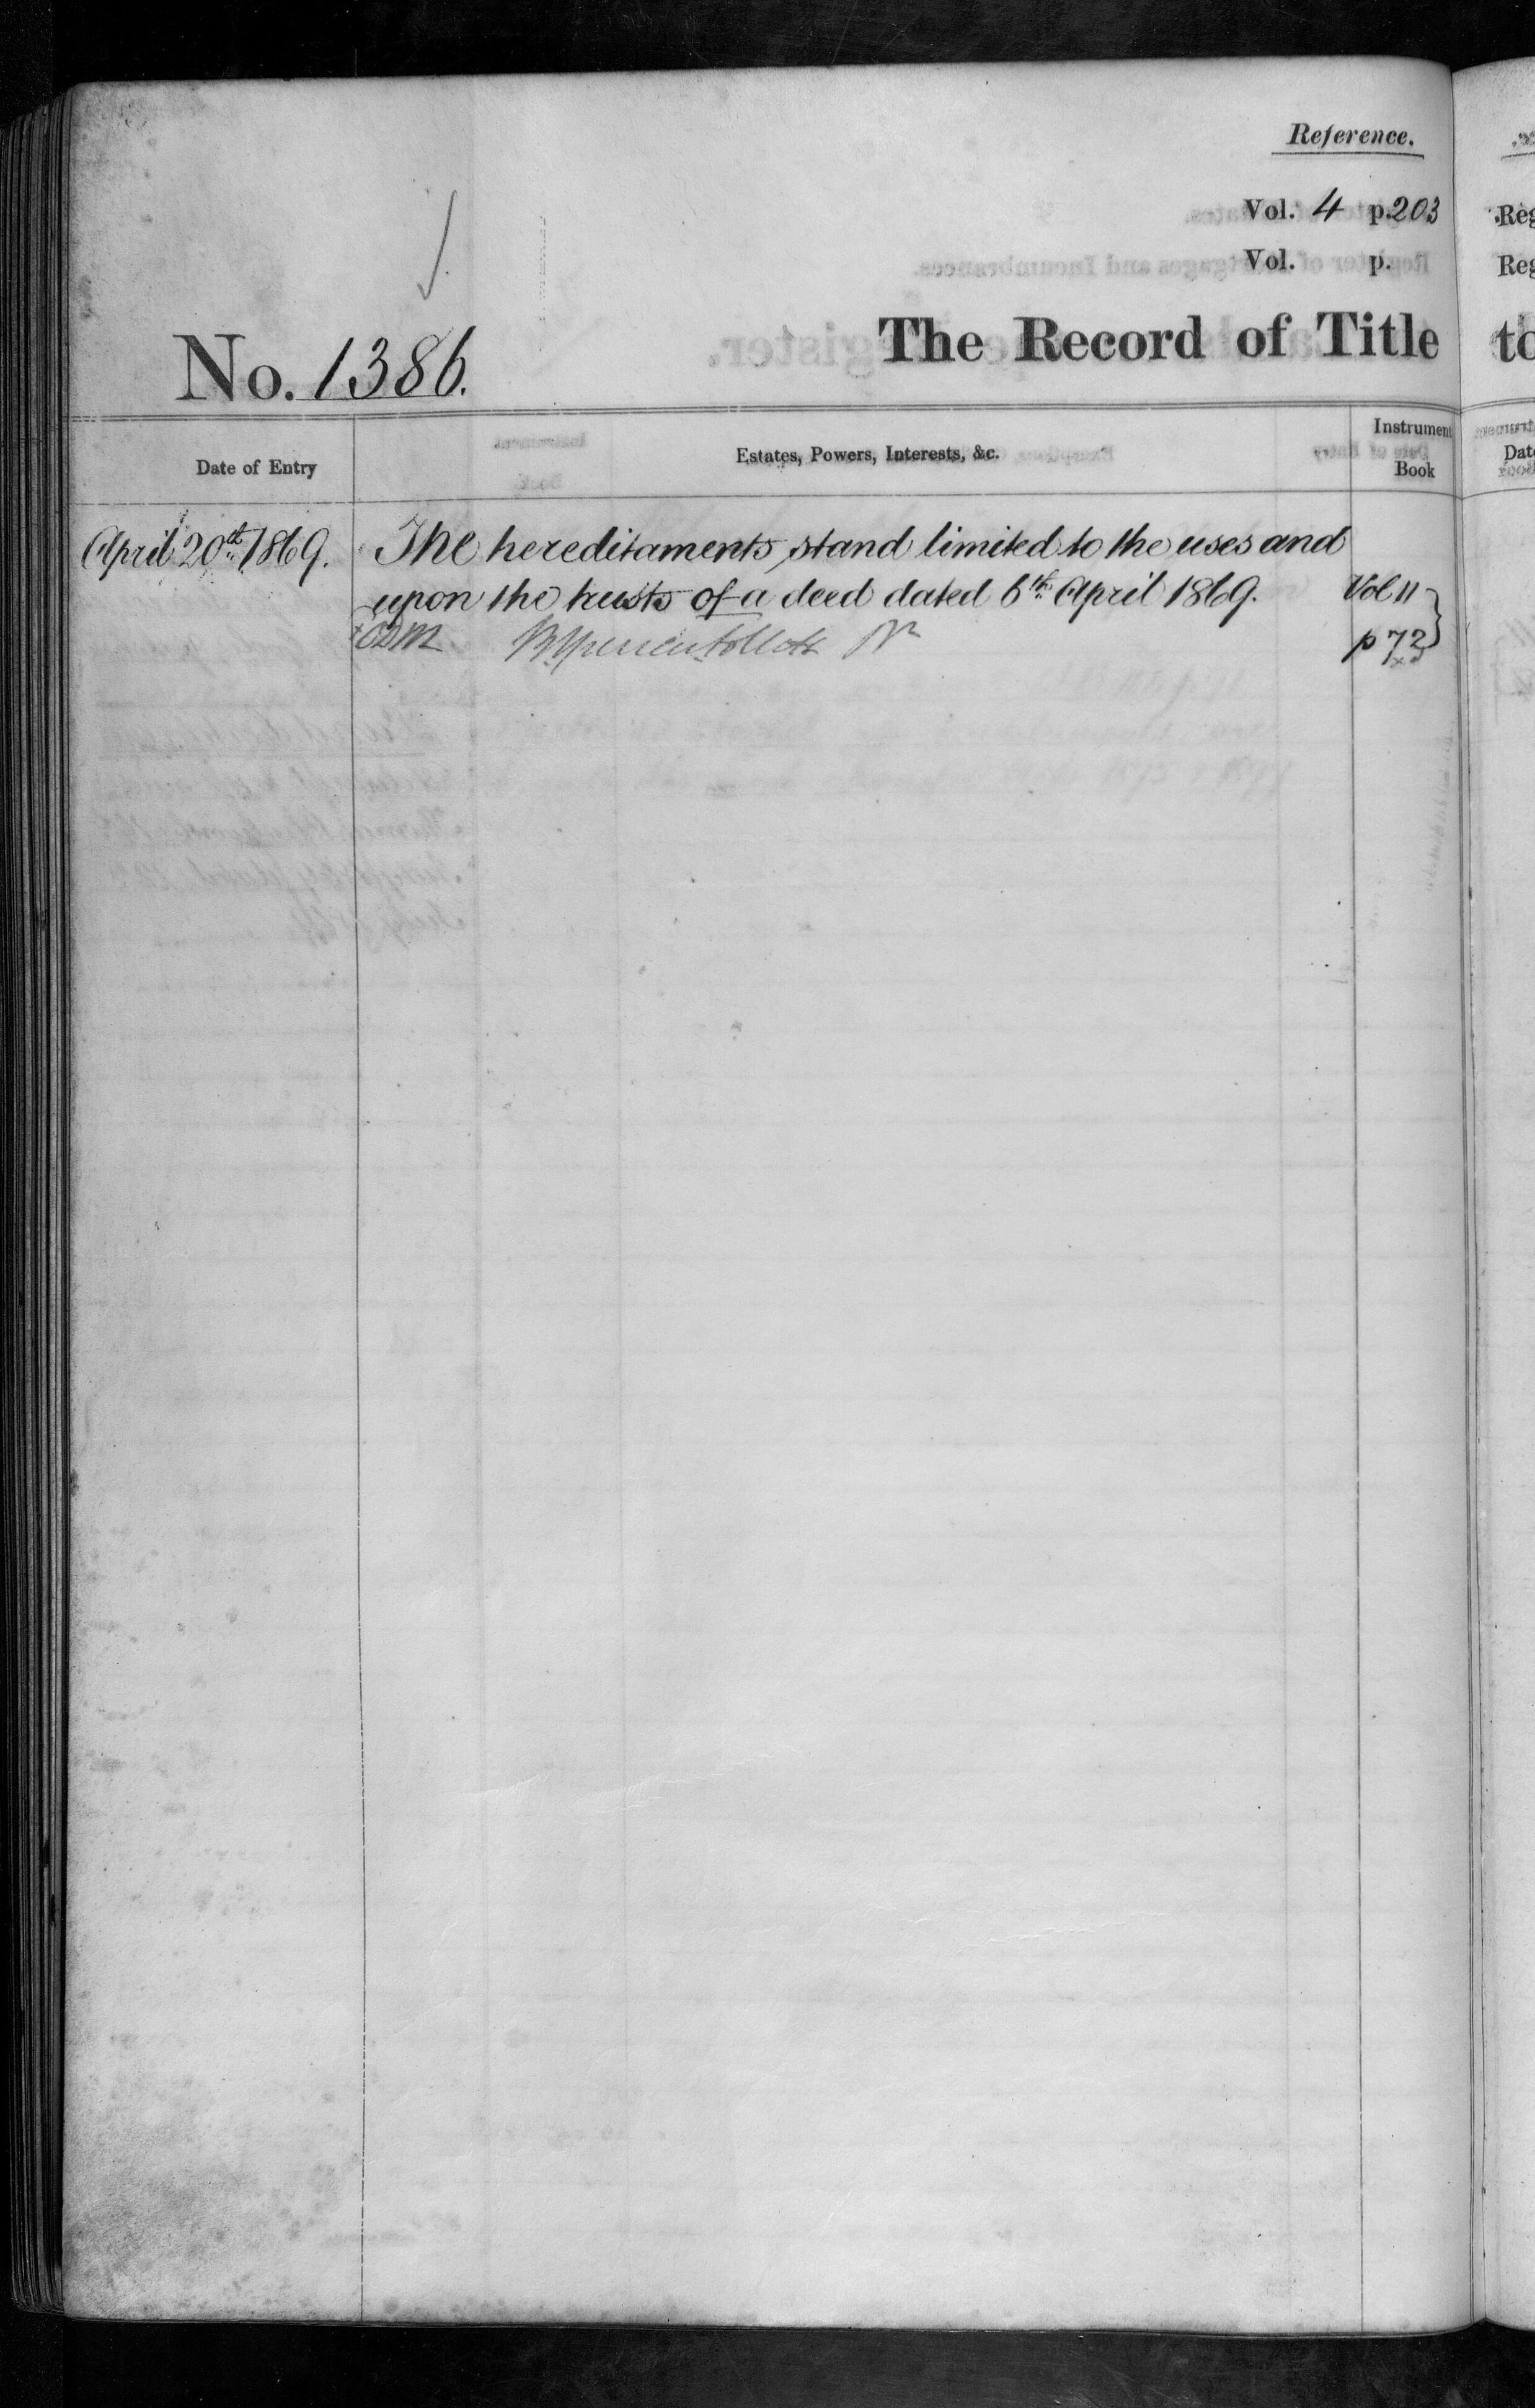 Reference.
Vol. 4 p. 203
Vol. p.
No. 1386. The Record of Title
Date of Entry Estates, Powers, Interests, &c. Instrument Book
April 20th 1869. The hereditaments stand limited to the uses and
upon the trusts of a deed dated 6th April 1869. Vol 11
p 72
Reg
Reg
to
Date